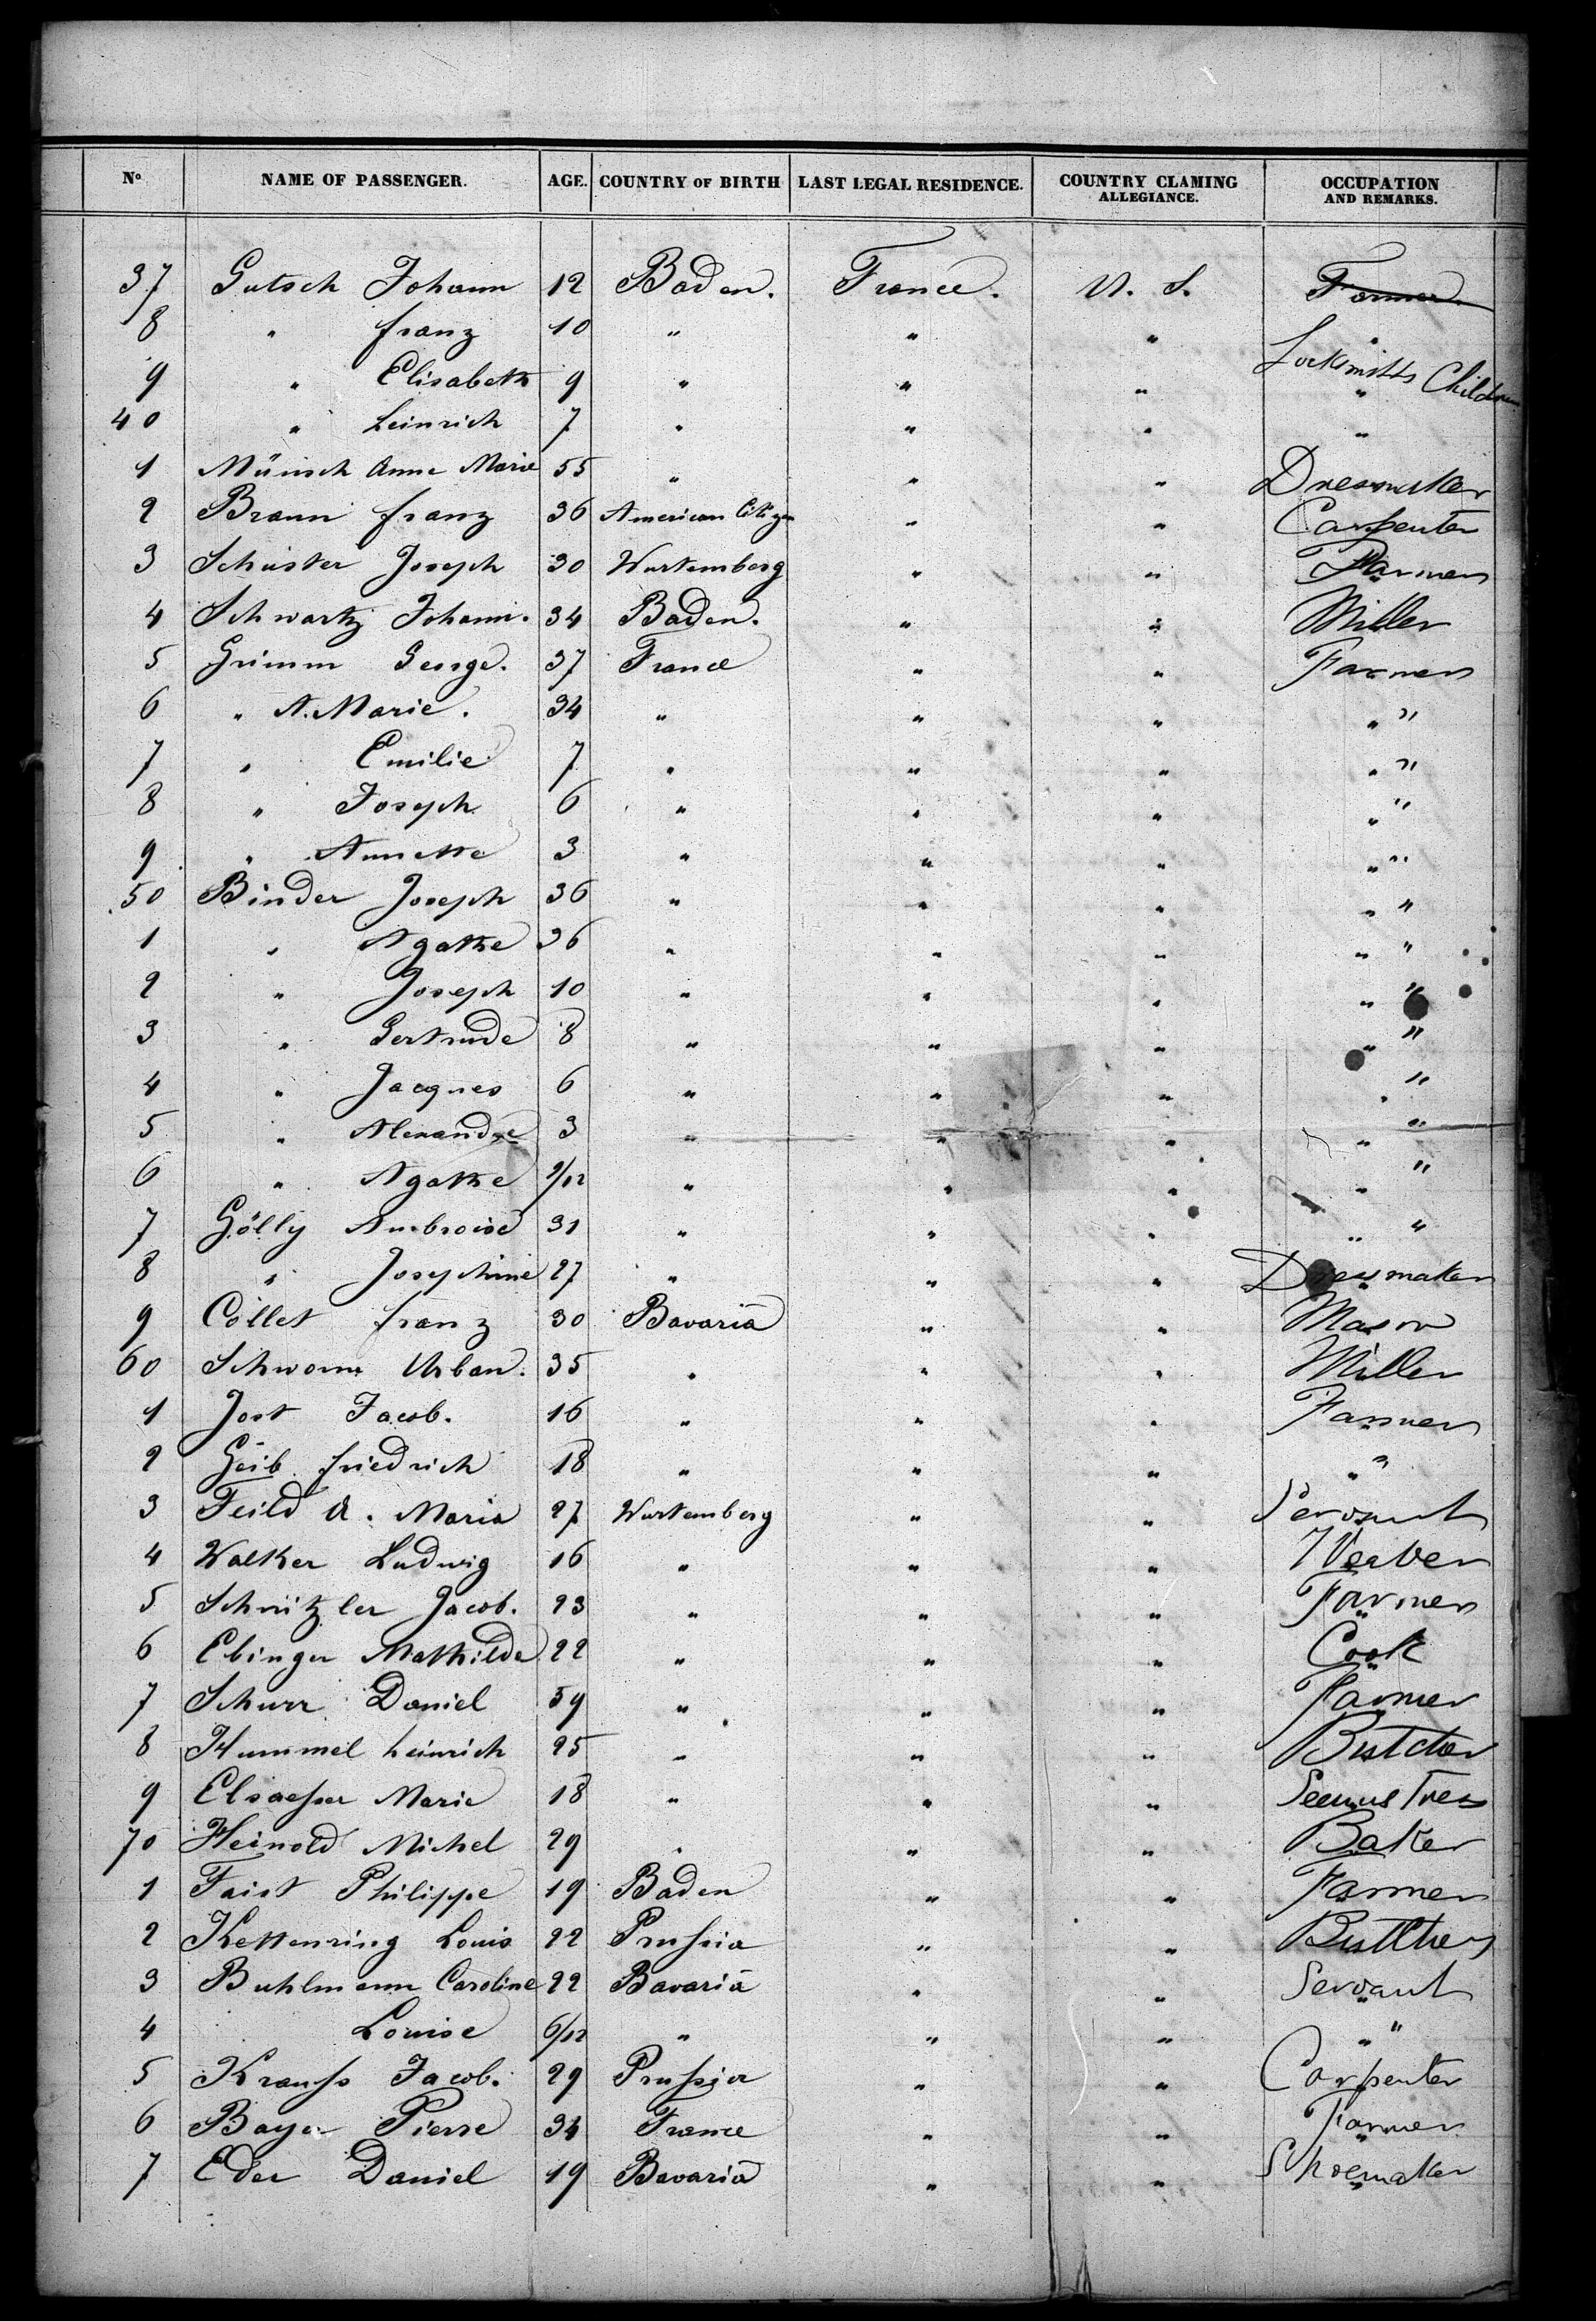 No NAME OF PASSENGER. AGE. COUNTRY OF BIRTH LAST LEGAL RESIDENCE. COUNTRY CLAMING ALLEGIANCE. OCCUPATION AND REMARKS.
37 Gutsch Johann 12 Baden. France. U. S. Farmer
8 " franz 10 " " " "
9 " Elisabeth 9 " " " Locksmiths Children
40 " heinrich 7 " " " "
1 Münsch Anne Marie 55 " " " Dressmaker
2 Braun franz 36 American Citizen " " Carpenter
3 Schuster Joseph 30 Wurtemberg " " Farmer
4 Schwartz Johann. 34 Baden. " " Miller
5 Grimm George. 37 France " " Farmer
6 " A. Marie. 34 " " " " "
7 " Emilie 7 " " " " "
8 " Joseph 6 " " " " "
9 " Annette 3 " " " " "
50 Binder Joseph 36 " " " " "
1 " Agathe 36 " " " " "
2 " Joseph 10 " " " " "
3 " Gertrude 8 " " " " "
4 " Jacques 6 " " " " "
5 " Alexandre 3 " " " " "
6 " Agathe 9/12 " " " " "
7 Gölly Ambroise 31 " " " " "
8 " Josephine 27 " " " Dressmaker
9 Collet franz 30 Bavaria " " Mason
60 Schworm Urban. 35 " " " Miller
1 Jost Jacob. 16 " " " Farmer
2 Geib friedrich 18 " " " " "
3 Feild A. Maria 27 Wurtemberg " " Servant
4 Walker Ludwig 16 " " " Weaver
5 Schnitzler Jacob. 23 " " " Farmer
6 Ebinger Mathilde 22 " " " Cook
7 Schurr Daniel 59 " " " Farmer
8 Hummel heinrich 25 " " " Butcher
9 Elsaesser Marie 18 " " " Seemstress
70 Heinold Michel 29 " " " Baker
1 Faist Philippe 19 Baden " " Farmer
2 Kettenring Louis 22 Prussia " " Butcher
3 Buhlmann Caroline 22 Bavaria " " Servant
4 Louise 6/12 " " " " "
5 Krauss Jacob. 29 Prussia " " Carpenter
6 Bayer Pierre 34 France " " Farmer
7 Eder Daniel 19 Bavaria " " Shoemaker